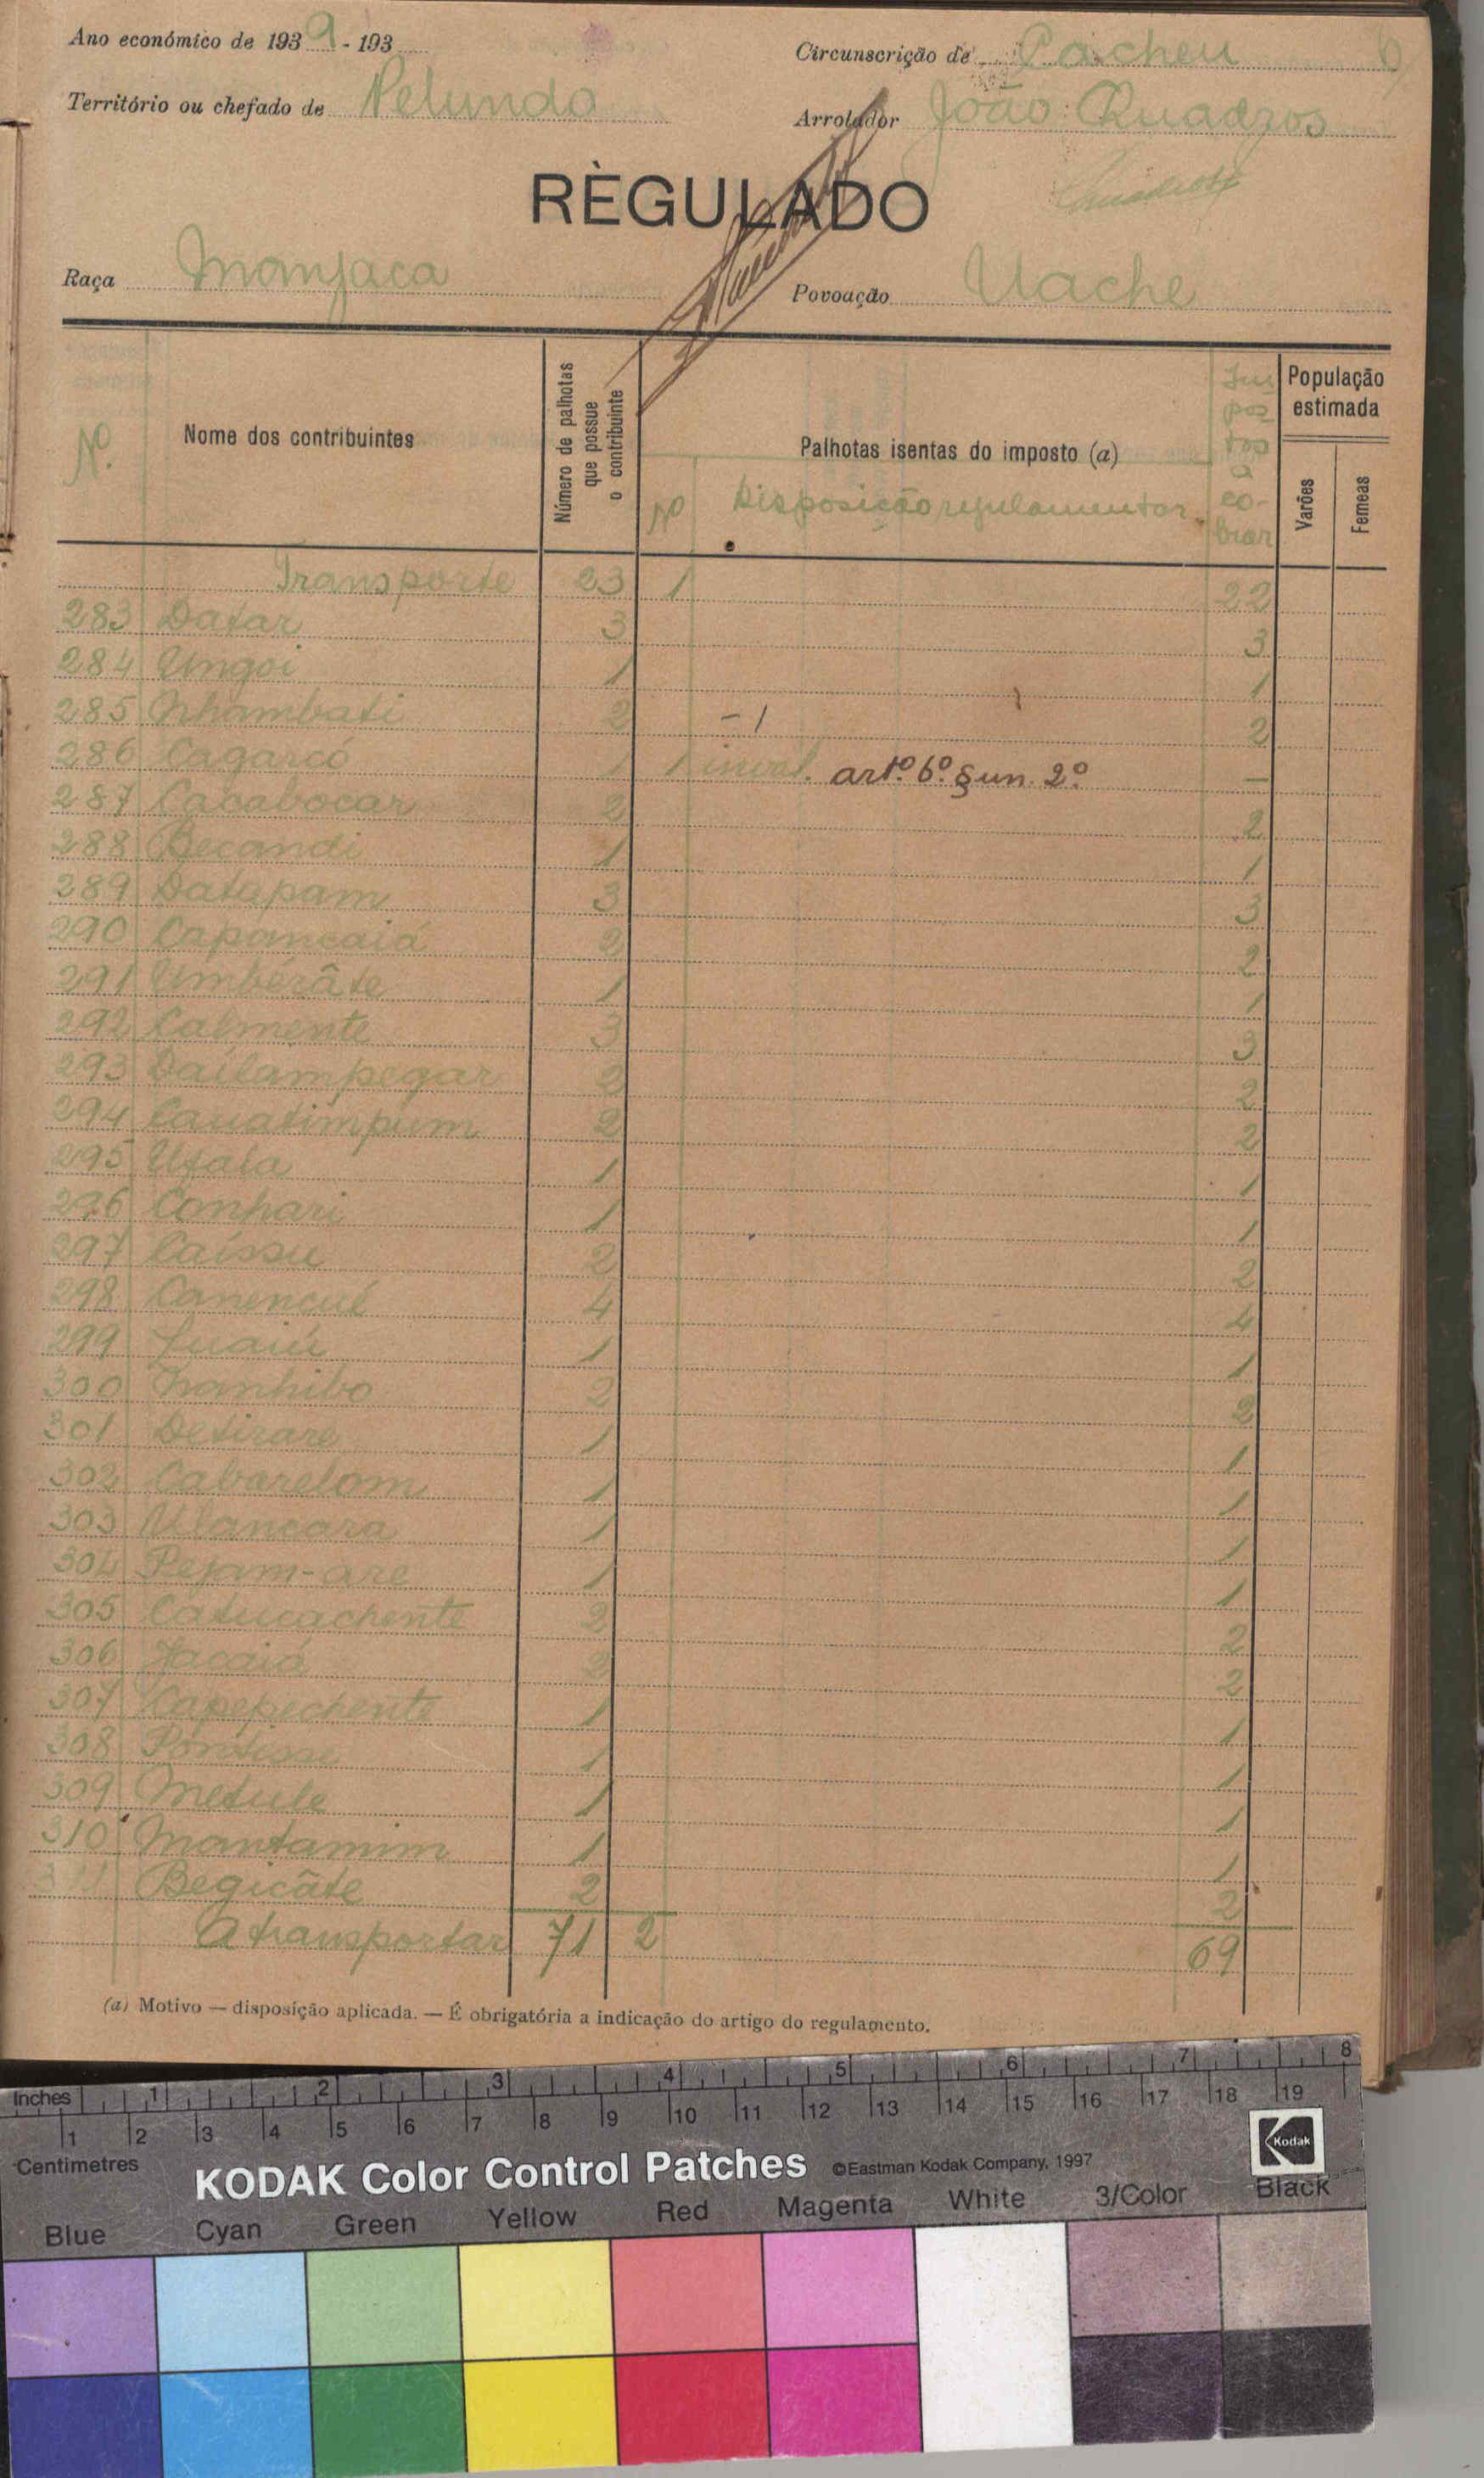 Ano económico de 1939-193
Circunscrição de Cacheu
Território ou chefado de Pelundo
Arrolador João Quadros
RÈGULADO
Raça Manjaca
Povoação Uache
Nº
Nome dos contribuintes
Número de palhotas que possue o contribuinte
Palhotas isentas do imposto (a)
Nº Disposição regulamentar
Impostos a cobrar
População estimada
Varões
Femeas
Transporte 23 1 22
283 Datar 3 3
284 Ungoi 1 1
285 Nhambati 2 -1 2
286 Cagarcó 1 1 invál. artº. 6º. § un. 2º —
287 Cacabocar 2 2
288 Becandi 1 1
289 Datapam 3 3
290 Capancaiá 2 2
291 Umberâte 1 1
292 Calmente 3 3
293 Dailampegar 2 2
294 Cauatimpum 2 2
295 Ufala 1 1
296 Conhari 1 1
297 Caíssu 2 2
298 Canencué 4 4
299 1 1
300 Nanhibo 2 2
301 Detirare 1 1
302 Cabarelom 1 1
303 1 1
304 Pejam-are 1 1
305 Catucachente 2 2
306 Jacaiá 2 2
307 Capepechente 1 1
308 1 1
309 Metule 1 1
310 Mantamim 1 1
311 Begicâte 2 2
A transportar 71 2 69
(a) Motivo — disposição aplicada. — É obrigatória a indicação do artigo do regulamento.
Inches 1 2 3 4 5 6 7 8
1 2 3 4 5 6 7 8 9 10 11 12 13 14 15 16 17 18 19
Centimetres
KODAK Color Control Patches ©Eastman Kodak Company, 1997
Kodak
Blue Cyan Green Yellow Red Magenta White 3/Color Black